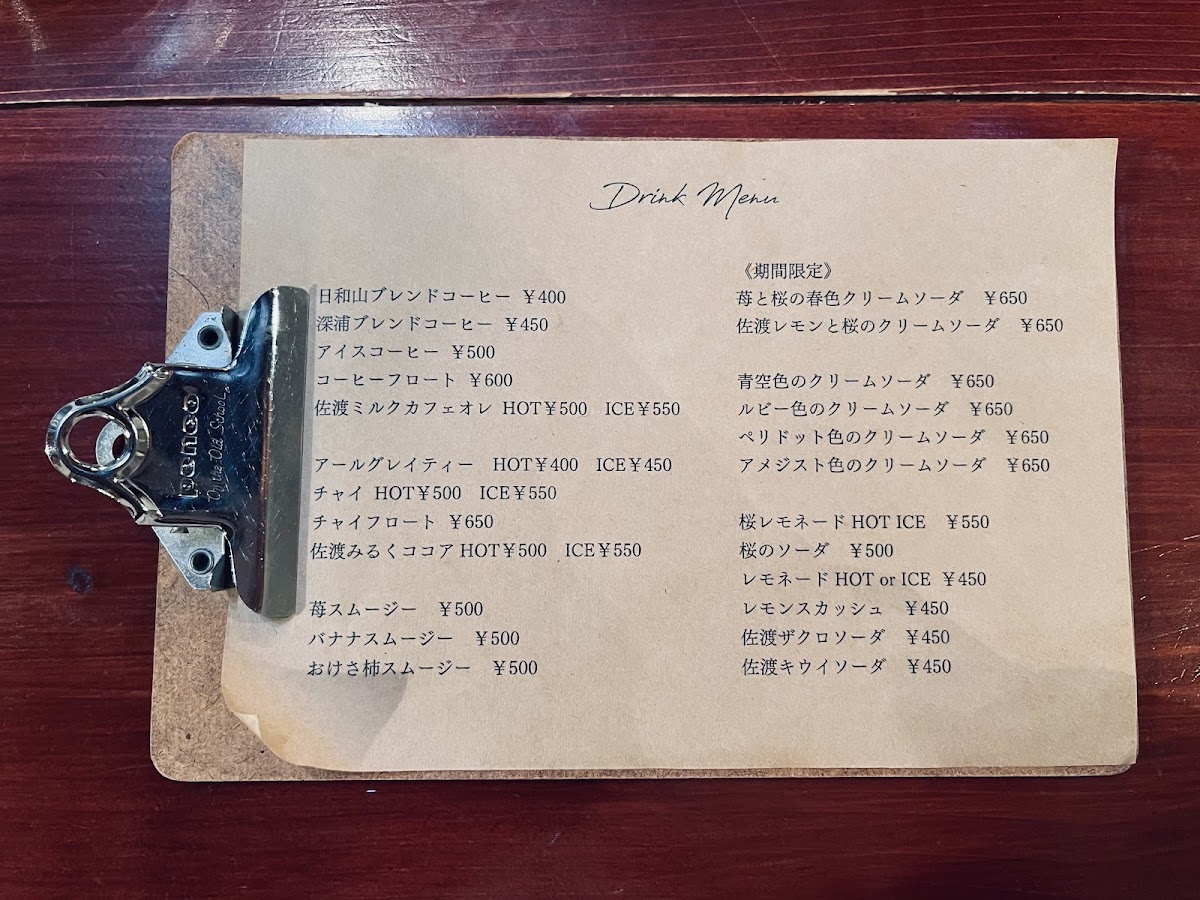 Drink Menu
日和山ブレンドコーヒー ￥400
深浦ブレンドコーヒー ￥450
アイスコーヒー ￥500
コーヒーフロート ￥600
佐渡ミルクカフェオレ HOT￥500 ICE￥550
アールグレイティー HOT￥400 ICE￥450
チャイ HOT￥500 ICE￥550
チャイフロート ￥650
佐渡みるくココア HOT￥500 ICE￥550
苺スムージー ￥500
バナナスムージー ￥500
おけさ柿スムージー ￥500
《期間限定》
苺と桜の春色クリームソーダ ￥650
佐渡レモンと桜のクリームソーダ ￥650
青空色のクリームソーダ ￥650
ルビー色のクリームソーダ ￥650
ペリドット色のクリームソーダ ￥650
アメジスト色のクリームソーダ ￥650
桜レモネード HOT ICE ￥550
桜のソーダ ￥500
レモネード HOT or ICE ￥450
レモンスカッシュ ￥450
佐渡ザクロソーダ ￥450
佐渡キウイソーダ ￥450
penco
On the Old School